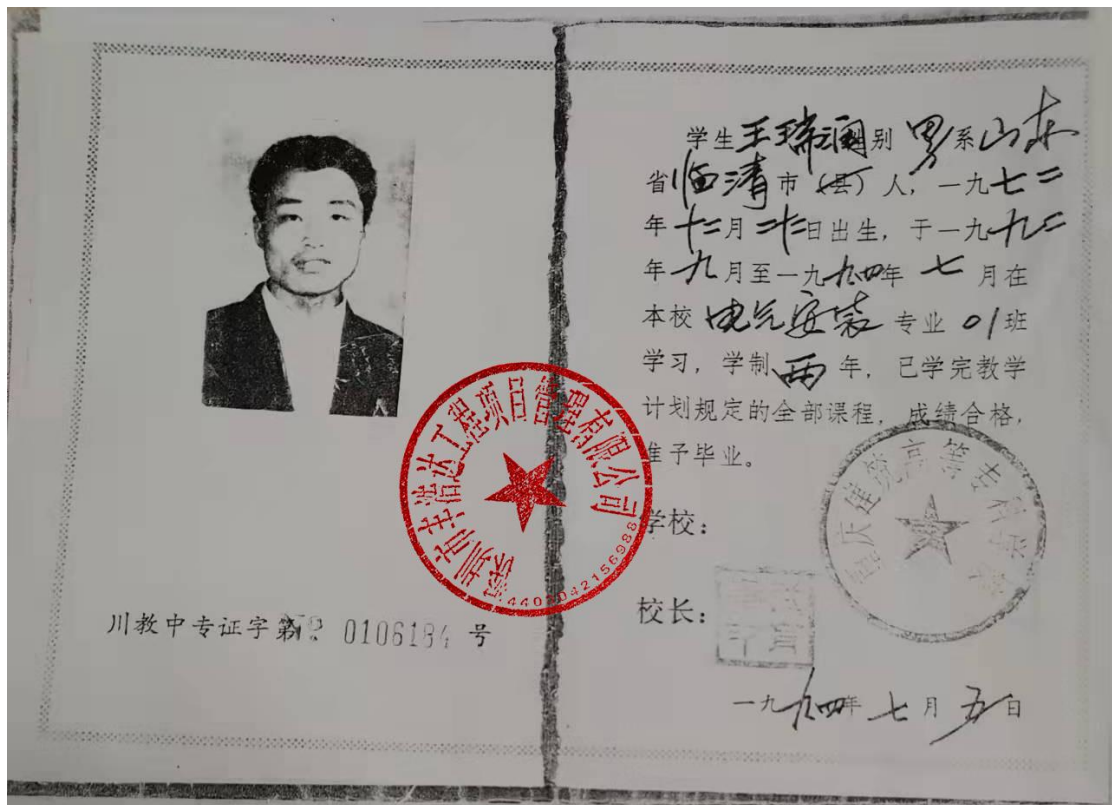 川教中专证字第 0106184 号
深圳市丰浩达工程项目管理有限公司
4403042156988
学生王瑞澜别 男 系山东
省临清市(县)人，一九七二
年十二月二十二日出生，于一九九二
年九月至一九九四年 七 月在
本校 电气安装 专业 01班
学习，学制 两 年，已学完教学
计划规定的全部课程，成绩合格，
准予毕业。
学校：
重庆建筑高等专科学校
校长：
一九九四年 七 月 五 日